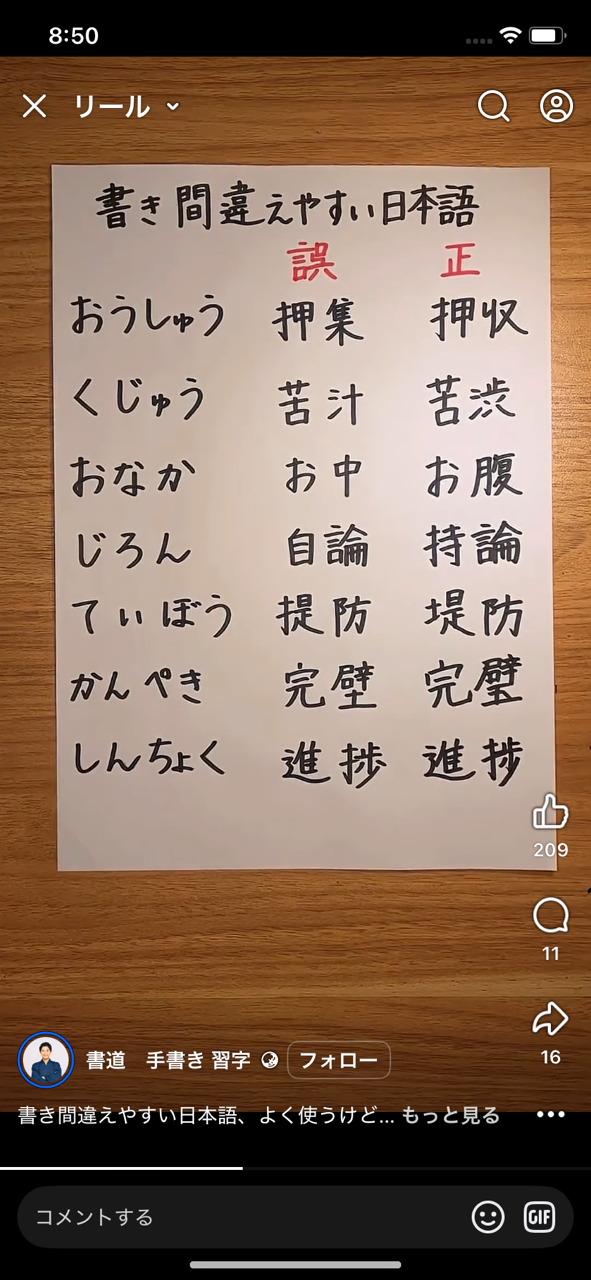 8:50
リール
書き間違えやすい日本語
誤 正
おうしゅう 押集 押収
くじゅう 苦汁 苦渋
おなか お中 お腹
じろん 自論 持論
てぃぼう 提防 堤防
かんぺき 完壁 完璧
しんちょく 進捗 進捗
209
11
16
書道 手書き 習字 フォロー
書き間違えやすい日本語、よく使うけど... もっと見る
コメントする
GIF